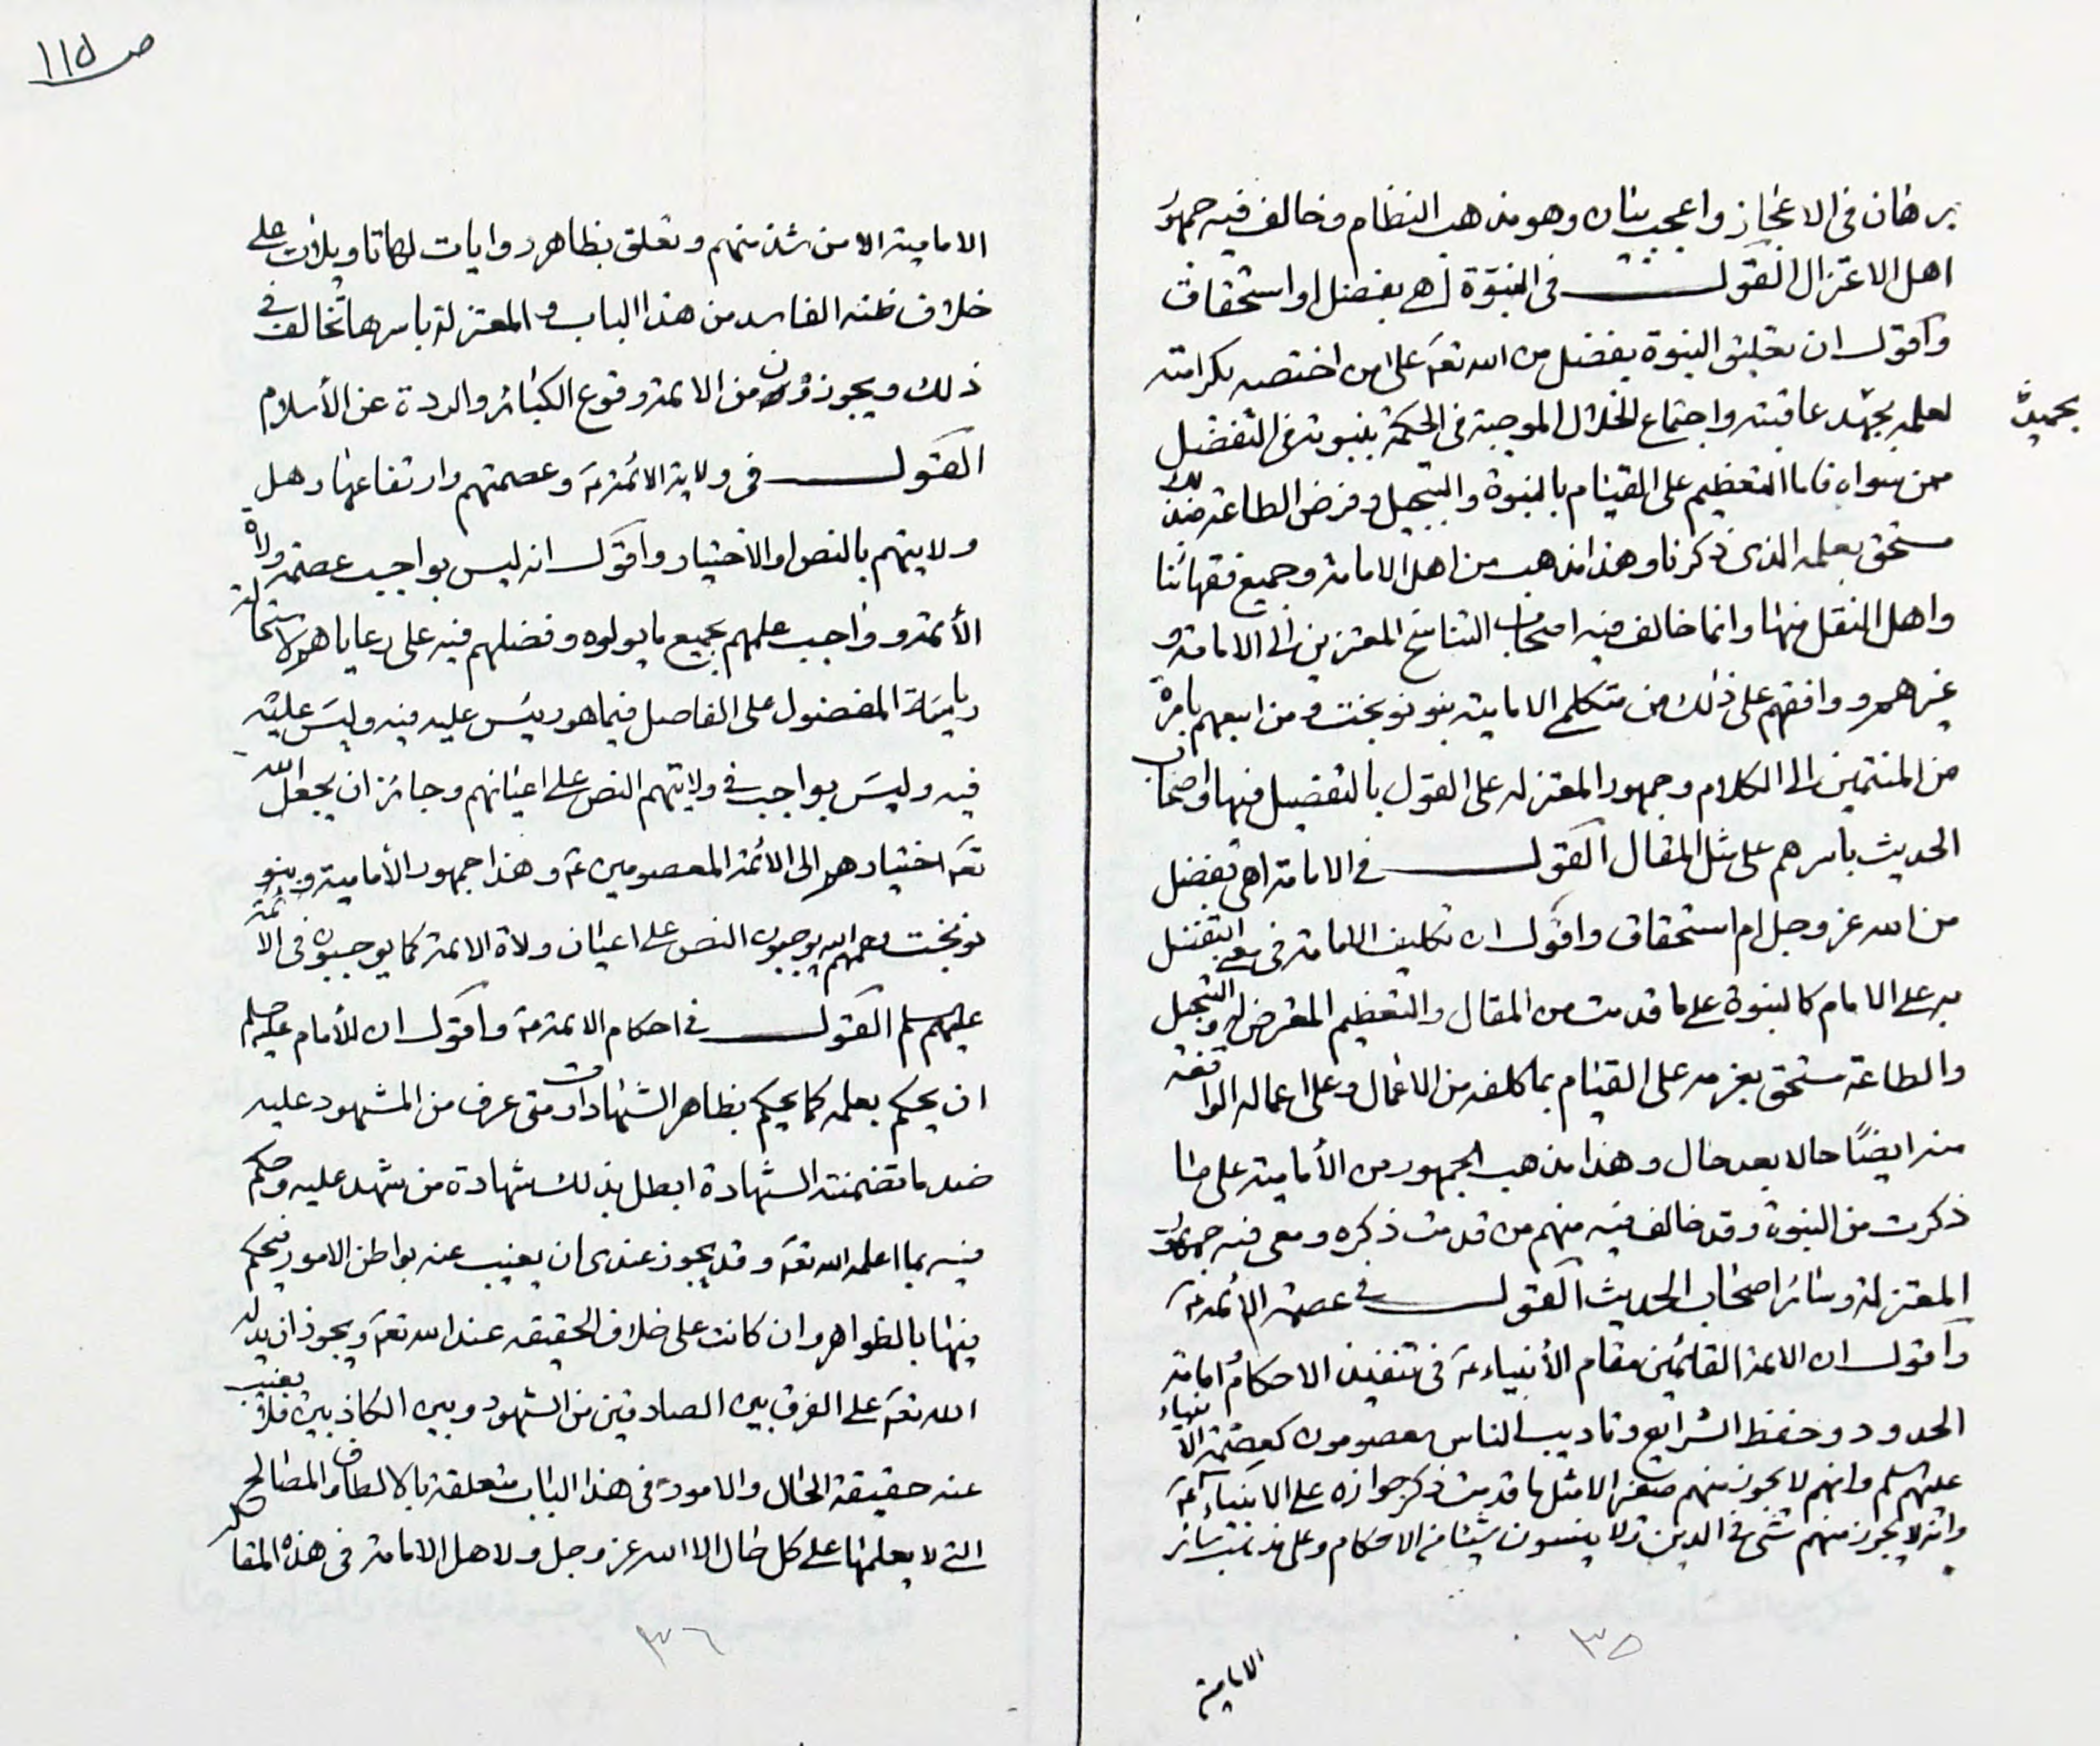 برهان في الاعجاز واعجب بيان وهو مذهب النظام وخالف فيه جمهور
اهل الاعتزال القول في النبوة اهي بفضل او استحقاق
واقول ان تعليق النبوة بفضل من الله تعہ على من اختصه بكرامته
لعلمه بجهد عاقبته واجتماع الخلال الموجبة في الحكمة بنبوته في التفضيل
بحميد
ممن سواه فاما التعظيم على القيام بالنبوة والتبجيل وفرض الطاعة فذلك
مستحق بعلمه الذي ذكرنا وهذا مذهب من اهل الامامة وجميع فقهائنا
واهل النقل منها وانما خالف فيه اصحاب التناسخ المعتزين الى الامامة و
غيرهم ووافقهم على ذلك من متكلمي الامامية بنو نوبخت ومن اتبعهم باسره
من المنتمين الى الكلام وجمهور المعتزله على القول بالتفضيل فيها واصحاب
الحديث باسرهم على مثل المقال القول في الامامة اهي بفضل
من الله عز وجل ام استحقاق واقول ان تكليف الامامة في معنى التفضل
به على الامام كالنبوة على ما قدمت من المقال والتعظيم المفترض له والتبجيل
والطاعة مستحق بعزمه على القيام بما كلفه من الاعمال وعلى اعماله الواقعة
منه ايضًا حالا بعد حال وهذا مذهب الجمهور من الأمامية على ما
ذكرت من النبوة وقد خالف فيه منهم من قدمت ذكره ومعى فيه جمهور
المعتزلة وسائر اصحاب الحديث القول في عصمة الائمة عہ
واقول ان الائمة القائمين مقام الأنبياء عہ في تنفيذ الاحكام وامامة
الحدود وحفظ الشرايع وتاديب الناس معصومون كعصمة الانبياء
عليهم السلم وانهم لا يجوز منهم صغيرة الا مثل ما قدمت ذكر جوازه على الانبياء عہ
وانه لا يجوز منهم شئ في الدين ولا ينسون شيئا من الاحكام وعلى مذهب سائر
الامامية
٣٥
ص ١١٥
الامامية الا من شذ منهم وتعلق بظاهر روايات لها تاويلات على
خلاف ظنه الفاسد من هذا الباب والمعتزلة باسرها تخالف في
ذلك ويجوزون من الائمة وقوع الكبائر والردة عن الأسلام
القول في ولاية الائمة عہ وعصمتهم وارتفاعها وهل
ولايتهم بالنص او الاختيار واقول انه ليس بواجب عصمة ولاة
الأئمة وواجب علمهم بجميع ما يولوه وفضلهم فيه على رعاياهم لاستحالة
رياسة المفضول على الفاضل فيما هو رئيس عليه فيه وليس عليه
فيه وليس بواجب في ولايتهم النص على اعيانهم وجائز ان يجعل الله
تعہ اختيارهم الى الائمة المعصومين عہ وهذا جمهور الأمامية وبنو
نوبخت رحمهم الله يوجبون النص على اعيان ولاة الائمة كما يوجبوه في الائمة
عليهم سلم القول في احكام الائمة عہ واقول ان للأمام عليه سلم
ان يحكم بعلمه كما يحكم بظاهر الشهادات ومتى عرف من المشهود عليه
ضد ما تضمنته الشهادة ابطل بذلك شهادة من شهد عليه وحكم
فيه بما اعلمه الله تعہ وقد يجوز عندى ان يغيب عنه بواطن الامور فيحكم
فيها بالظواهر وان كانت على خلاف الحقيقه عند الله تعہ ويجوز ان يدله
الله تعہ على الفرق بين الصادقين من الشهود وبين الكاذبين فلا يغيب
عنه حقيقة الحال والامور في هذا الباب متعلقة بالالطاف والمصالح
التي لا يعلمها على كل حال الا الله عز وجل ولاهل الامامة في هذه المقالة
٣٦